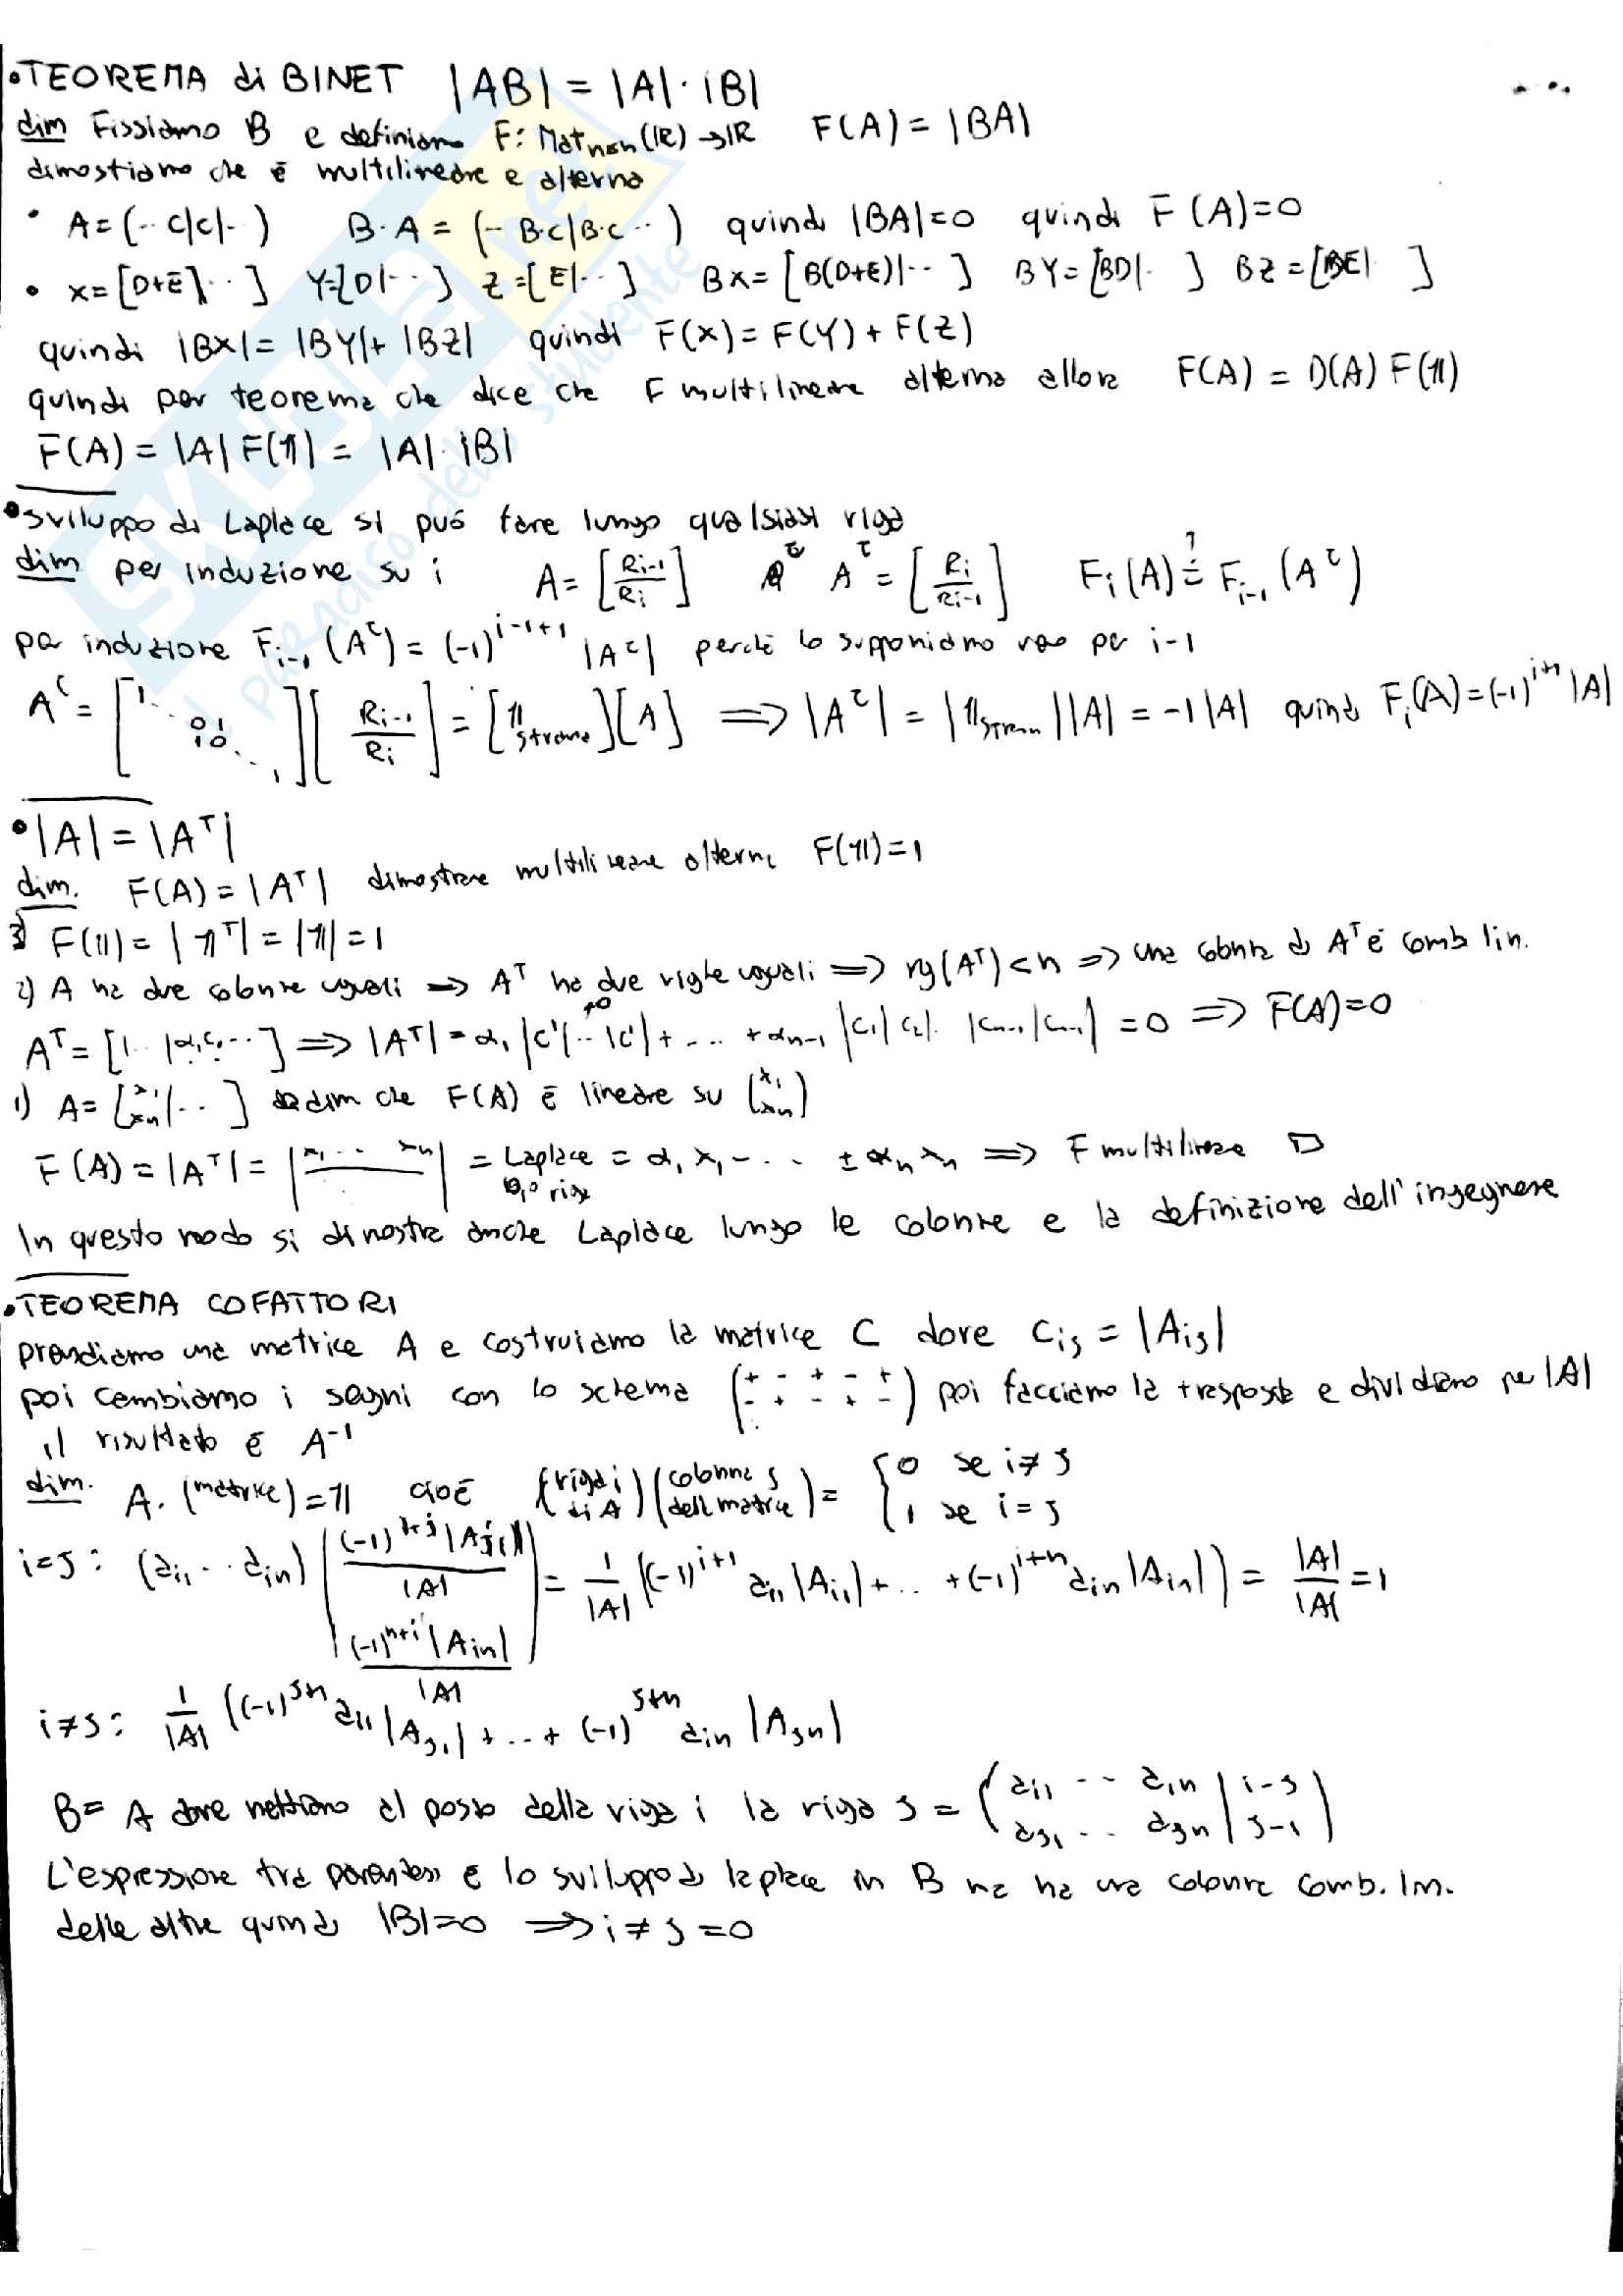 • TEOREMA di BINET |AB| = |A|·|B|
dim Fissiamo B e definiamo F: Mat nxn (ℝ) → ℝ F(A) = |BA|
dimostiamo che è multilineare e alterna
• A = (·· C|C|··) B·A = (·· B·C|B·C ··) quindi |BA|=0 quindi F(A)=0
• X = [D+E|··] Y=[D|··] Z=[E|··] BX = [B(D+E)|··] BY = [BD|· ] BZ = [BE| ]
quindi |BX| = |BY|+|BZ| quindi F(X) = F(Y) + F(Z)
quindi per teorema che dice che F multilineare alterna allora F(A) = D(A) F(𝟙)
F(A) = |A| F(𝟙) = |A|·|B|
• sviluppo di Laplace si può fare lungo qualsiasi riga
dim per induzione su i A = [Ri-1 / Ri] A^τ = [Ri / Ri-1] Fi(A) ≟ Fi-1(A^τ)
per induzione Fi-1(A^τ) = (-1)^(i-1+1) |A^τ| perché lo supponiamo vero per i-1
A^τ = [1 ·· 01 10 ·· 1] [Ri-1 / Ri] = [𝟙 strana][A] ⟹ |A^τ| = |𝟙 strana||A| = -1|A| quindi Fi(A) = (-1)^(i+1) |A|
• |A| = |A^T|
dim. F(A) = |A^T| dimostrare multilineare alterna F(𝟙)=1
3) F(𝟙) = |𝟙^T| = |𝟙| = 1
2) A ha due colonne uguali ⟹ A^T ha due righe uguali ⟹ rg(A^T) < n ⟹ una colonna di A^T è comb lin.
A^T = [|··|α1C1 ···] ⟹ |A^T| = α1 |C1|··|C1| + ... + αn-1 |C1|C2|· |Cn-1|Cn-1| = 0 ⟹ F(A)=0
1) A = [x1 : xn|··] dim che F(A) è lineare su (x1 : xn)
F(A) = |A^T| = |x1 ··· xn| = Laplace = α1 x1 - ··· ± αn xn ⟹ F multilineare □
riga
In questo modo si dimostra anche Laplace lungo le colonne e la definizione dell'ingegnere
• TEOREMA COFATTORI
prendiamo una matrice A e costruiamo la matrice C dove cij = |Aij|
poi cambiamo i segni con lo schema (+ - + - + / - + - + -) poi facciamo la trasposta e dividiamo per |A|
il risultato è A^-1
dim. A·(matrice) = 𝟙 cioè (riga i di A)(colonna j della matrice) = {0 se i≠j
1 se i=j
i=j: (ai1 ·· ain) ((-1)^(1+j) |Aj1| / |A| (-1)^(n+i) |Ain| / |A|) = 1/|A| ((-1)^(i+1) ai1 |Ai1| + ... + (-1)^(i+n) ain |Ain|) = |A|/|A| = 1
i≠j: 1/|A| ((-1)^(j+1) ai1 |Aj1| + ... + (-1)^(j+n) ain |Ajn|
B = A dove mettiamo al posto della riga i la riga j = (ai1 ·· ain | i-j / aj1 ·· ajn | j-i)
L'espressione tra parentesi è lo sviluppo di laplace in B ma ha una colonna comb. lin.
delle altre quindi |B|=0 ⟹ i≠j = 0